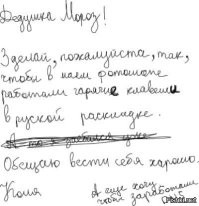 Дедушка Мороз!
Зделай, пожалуйста, так,
чтобы в моем фотошопе
работали гарячие клавеши
в руской раскладке.
А то я
Обещаю вести себя хорошо.
Коля
А еще хочу
чтобы заработали
Fishki.net